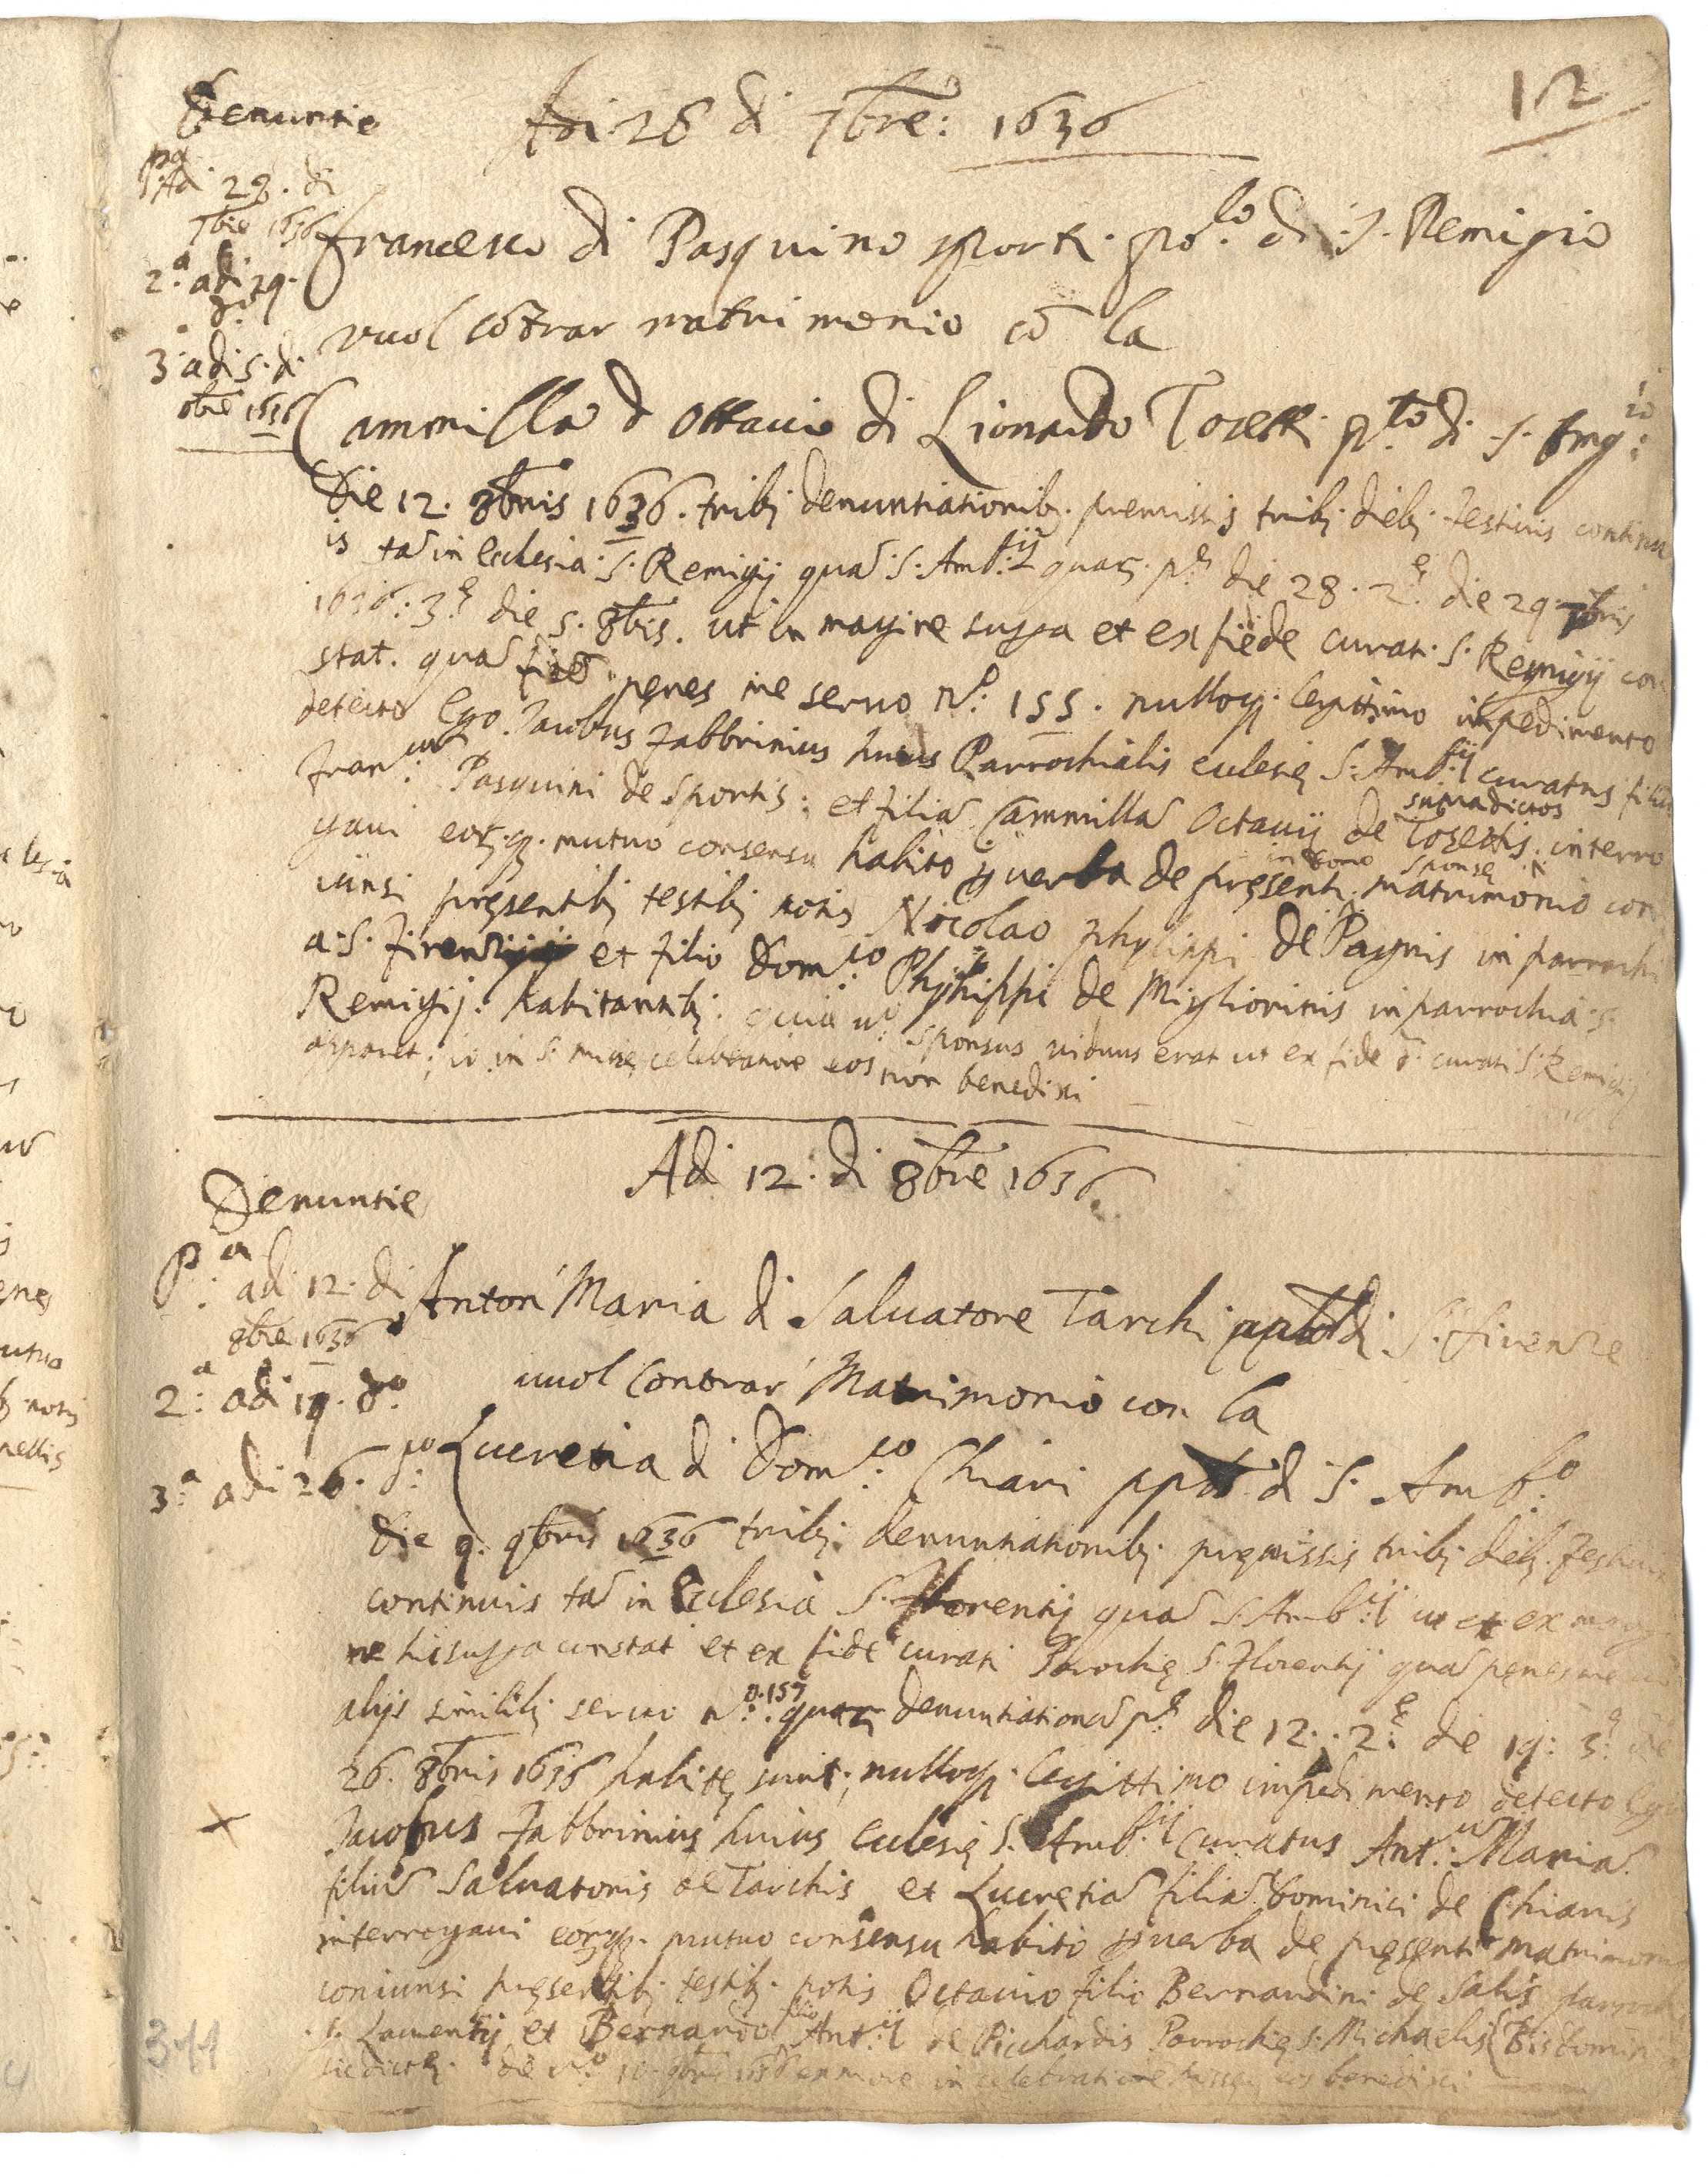 12
Denuntie
Adi 28 di 7bre: 1636
pa Ad 28. di
7bre 1636
2.a adi 29.
do
3.a adi 5. di
8bre 1636
Francesco di Pasquino sporti. po.lo di S. Remigio
vuol cōtrar matrimonio cō la
Cammilla d Ottavio di Lionardo Tosetti p.to di S. Amb.io
Die 12. 8bris 1636. tribj denuntiationibj. premissis tribj diebj festivis continu
is tā in Ecclesia S. Remigij quā S. Amb.ij quarū p.ª die 28. 2.ª die 29. 7bris
1636: 3.ª die 5. 8bris. ut in margine supra et ex fide curati S. Remigij con
stat. quā fidē penes me servo N.º 155. nulloqj. legittimo impedimento
detecto Ego Jacobus Fabbrinius huius Parrochialis ecclesię S. Amb.ij curatus filiū
Fran.cum Pasquini de Sportis: et filiā Cammillā Octavij de Tosettis supradictos interro
gavi eorūqj. mutuo consensu habito p verba de pręsenti in domo sponsę matrimonio con
iunsi pręsentibj testibj notis Nicolao Phylippi de Pagnis in parrochi
a S. Firenzij et filio Dom.co Phylippi de Migliorinis in parrochia S.
Remigij. habitantibj. quia v.º sponsus viduus erat ut ex fide d. curati S. Remigij
apparet; io in S. missę celebratione eos non benedixi
Adi 12. di 8bre 1636
Denuntie
P.a adi 12. di
8bre 1636
2.a adi 19. do
3.a adi 26. do
Anton Maria d Salvatore Tarchi pplo di S. Firenze
vuol contrar Matrimonio con la
Lucretia di Dom.co Chiari pplo d S. Amb.o
Die 9. 9bris 1636 tribj denuntiationibj. pręmissis tribj diebj. festivis
continuis tā in Ecclesia S. Florentij quā S. Amb.ij ut et ex margi
ne hic supra constat et ex fide curati Parochię S. Florentij quā penes me cū
alijs similibj servo N.º 157 quarū denuntiationū p.ª die 12. 2.ª die 19. 3.ª die
26. 8bris 1636 habitę sunt; nulloqj. legittimo impedimento detecto Ego
Jacobus Fabbrinius huius Ecclesię S. Amb.ij curatus Ant.um Mariā
filiū Salvatoris de Tarchis et Lucretiā filiā Dominici de Chiaris
interrogavi eorūqj. mutuo consensu habito p verba de pręsenti matrimonio
coniunsi pręsentibj testibj. notis Octavio filio Bernardini de Salis parroch
S. Laurentij et Bernardo filio Ant.ij de Ricchardis Parrochię S. Michaelis Bisdomin
die v.º 10. 9bris 1636 ex more in celebratione missę eos benedixi
311